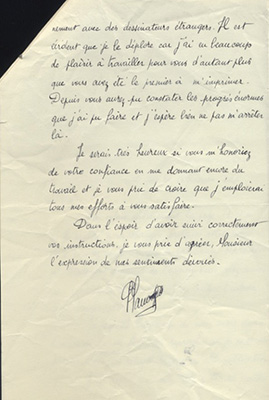 nement avec des dessinateurs étrangers. Il est
évident que je le déplore car j'ai eu beaucoup
de plaisir à travailler pour vous d'autant plus
que vous avez été le premier à m'imprimer.
Depuis vous aurez pu constater les progrès énormes
que j'ai pu faire et j'espère bien ne pas m'arrêter
là.
Je serais très heureux si vous m'honoriez
de votre confiance en me donnant encore du
travail et je vous prie de croire que j'emploierai
tous mes efforts à vous satisfaire.
Dans l'espoir d'avoir suivi correctement
vos instructions, je vous prie d'agréer, Monsieur
l'expression de mes sentiments dévoués.